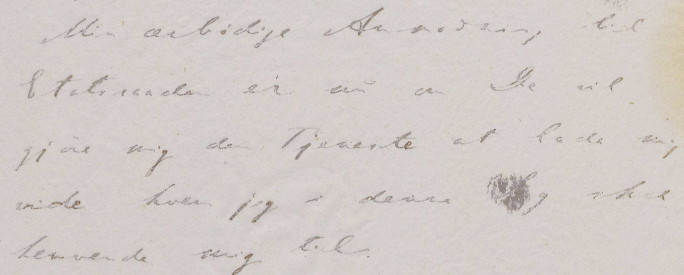 Min ærbödige Anmodning til
Etatsraaden er nu om De vil
gjöre mig den Tjeneste at lade mig
vide hvem jeg i denne Sag skal
henvende mig til.